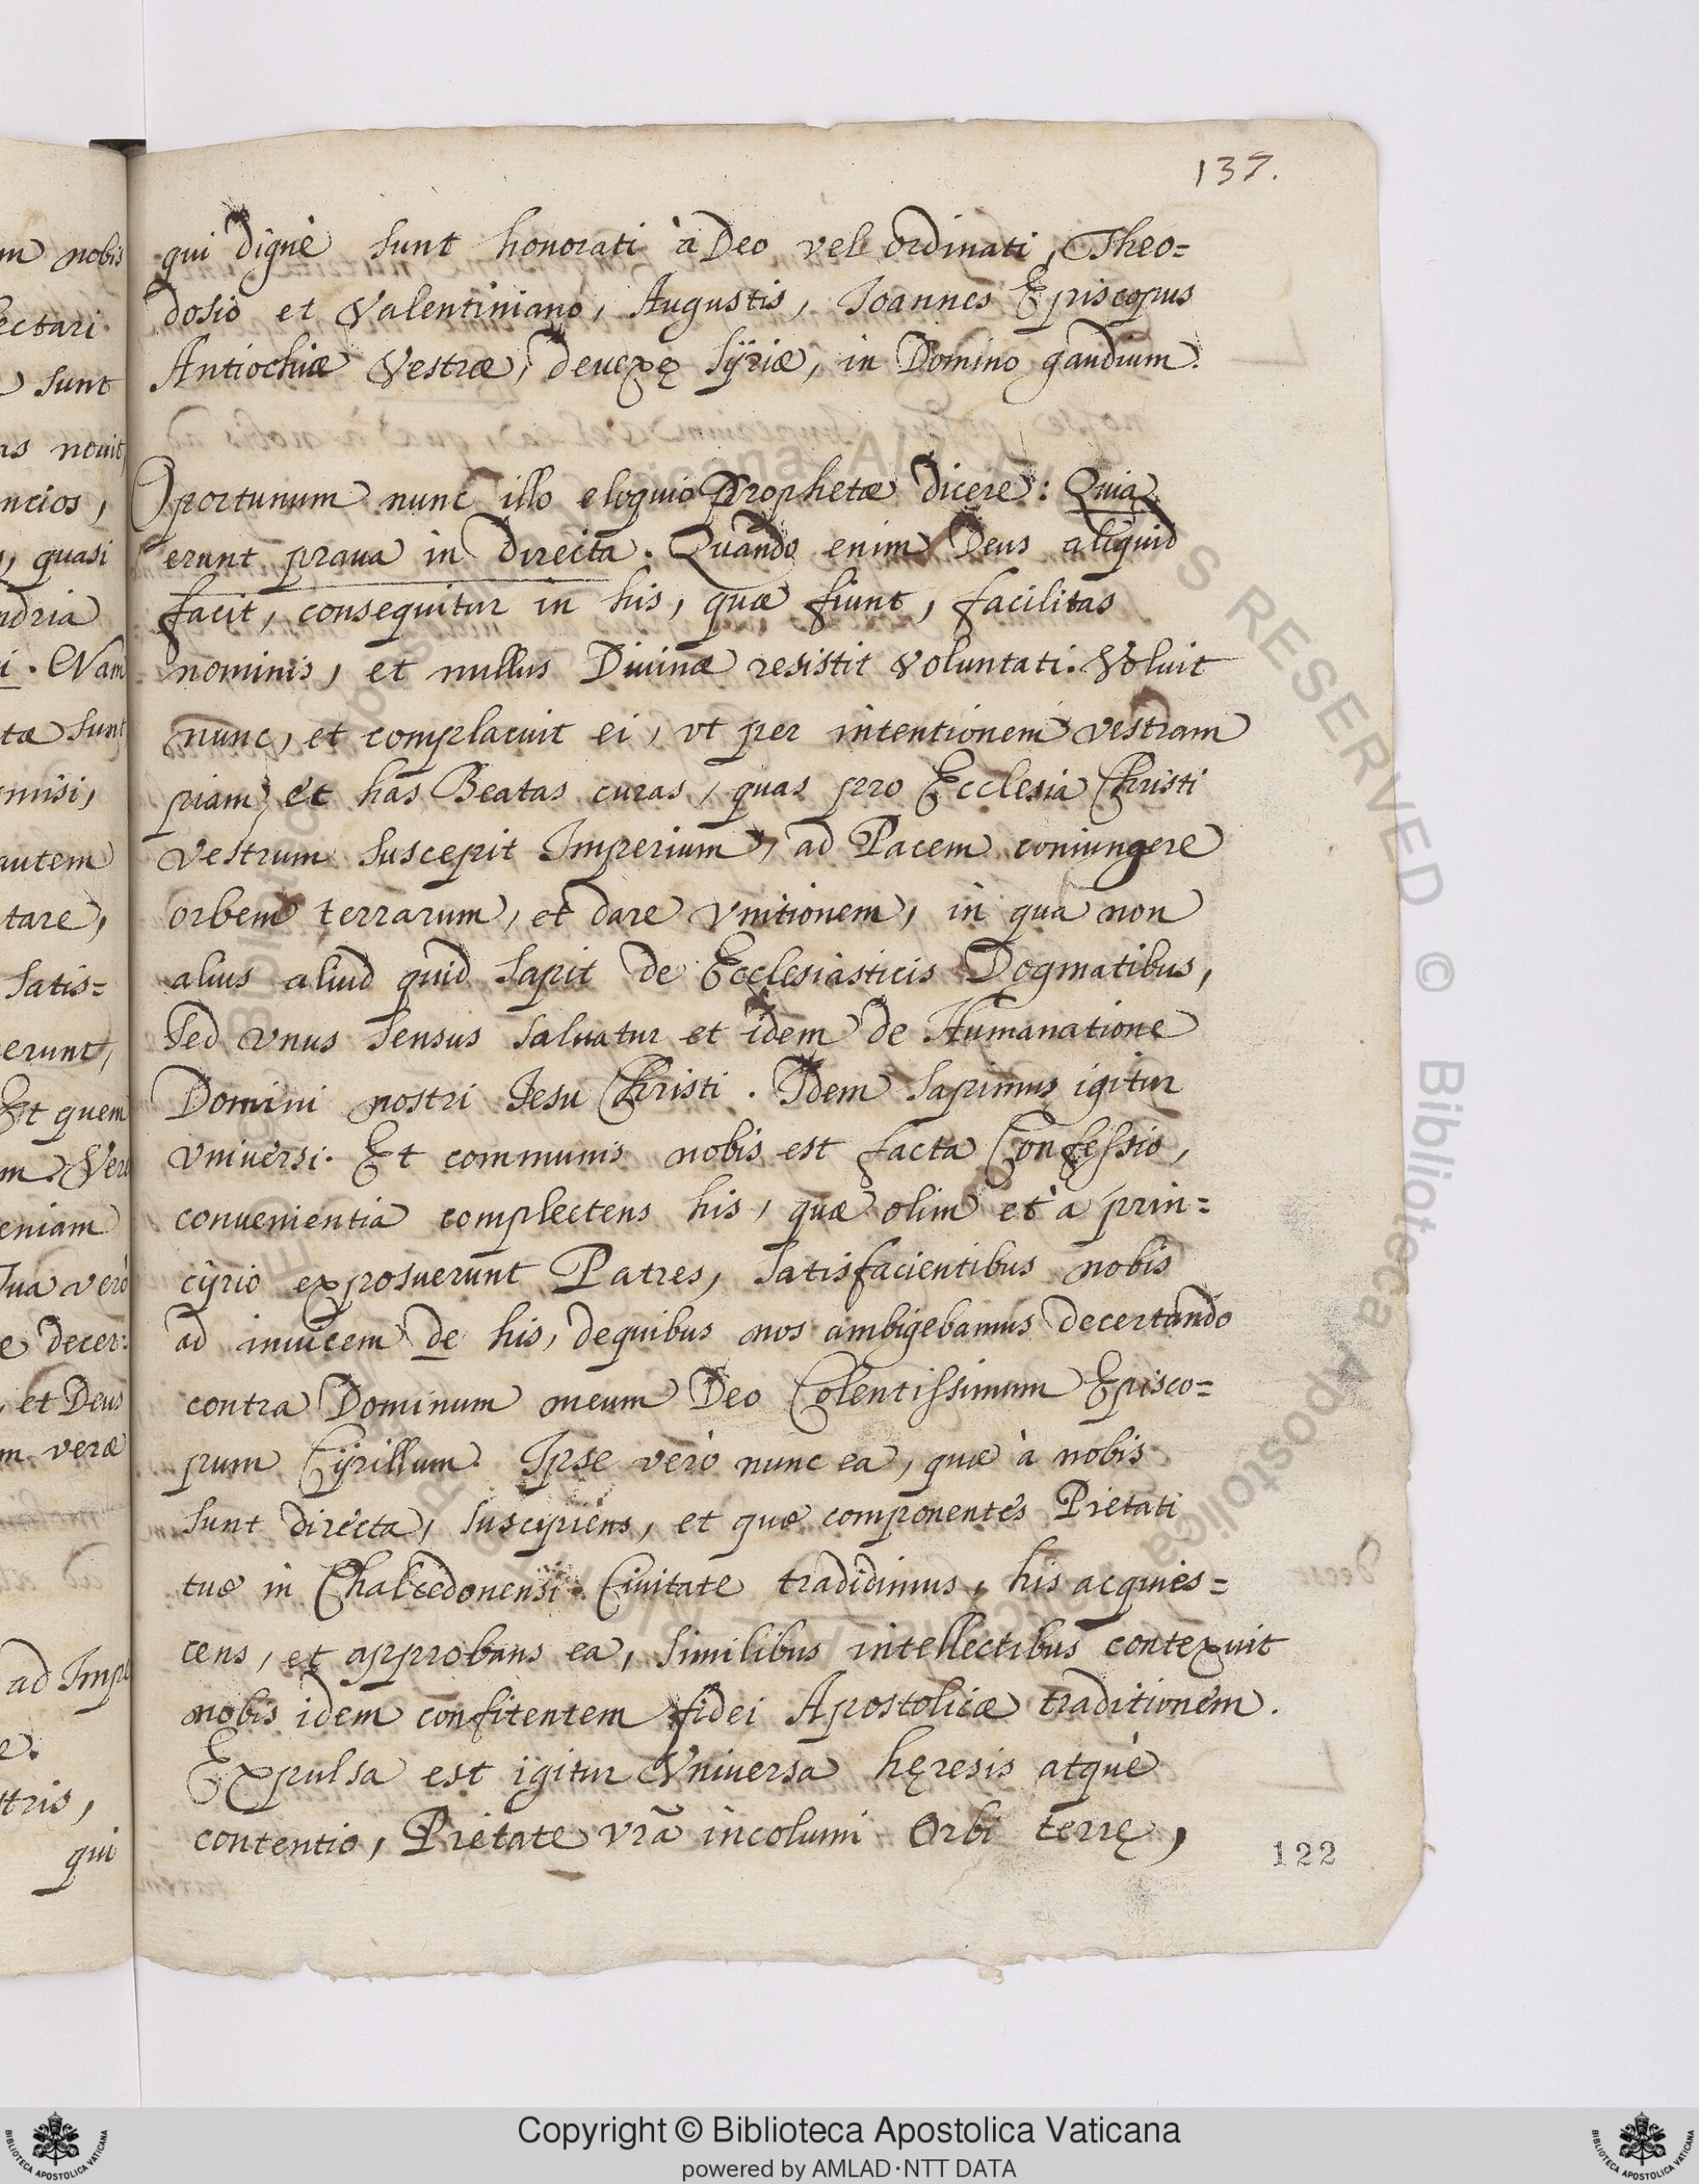 137.
qui dignè sunt honorati à Deo vel ordinati, Theo=
dosio et Valentiniano, Augustis, Joannes Episcopus
Antiochiæ Vestræ, deuexę Sÿriæ, in Domino gaudium.
Oportunum nunc illo eloquio Prophetæ dicere: Quia
erunt praua in directa. Quando enim Deus aliquid
facit, consequitur in his, quæ fiunt, facilitas
nominis, et nullus Diuinæ resistit Voluntati. Voluit
nunc, et complacuit ei, vt per intentionem vestram
piam, et has Beatas curas, quas pro Ecclesia Christi
vestrum suscepit Imperium, ad Pacem coniungere
orbem terrarum, et dare vnitionem, in qua non
alius aliud quid sapit de Ecclesiasticis Dogmatibus,
sed vnus sensus saluatur et idem de Humanatione
Domini nostri Jesu Christi. Idem sapimus igitur
vniuersi. Et communis nobis est facta Confessio,
conuenientia complectens his, quæ olim et à prin=
cipio exposuerunt Patres, satisfacientibus nobis
ad inuicem de his, dequibus nos ambigebamus decertando
contra Dominum meum Deo Colentissimum Episco=
pum Cÿrillum. Ipse verò nunc ea, quæ à nobis
sunt directa, suscipiens, et quæ componentes Pietati
tuæ in Chalcedonensi Ciuitate tradidimus, his acquies=
cens, et approbans ea, similibus intellectibus contexuit
nobis idem confitentem fidei Apostolicæ traditionem.
Expulsa est igitur Vniuersa hęresis atquè
contentio, Pietate vrã incolumi Orbi terrę,
122
m nobis
ectari
sunt
as nouit,
ncios,
, quasi
ndria
i. Nam
tæ sunt
misi,
autem
tare,
satis=
erunt,
Et quem
m. Verũ
eniam
sua verò
e decer=
, et Deus
m veræ
ad Impe
e.
tris,
qui
Copyright © Biblioteca Apostolica Vaticana
powered by AMLAD·NTT DATA
BIBLIOTECA APOSTOLICA VATICANA
BIBLIOTECA APOSTOLICA VATICANA